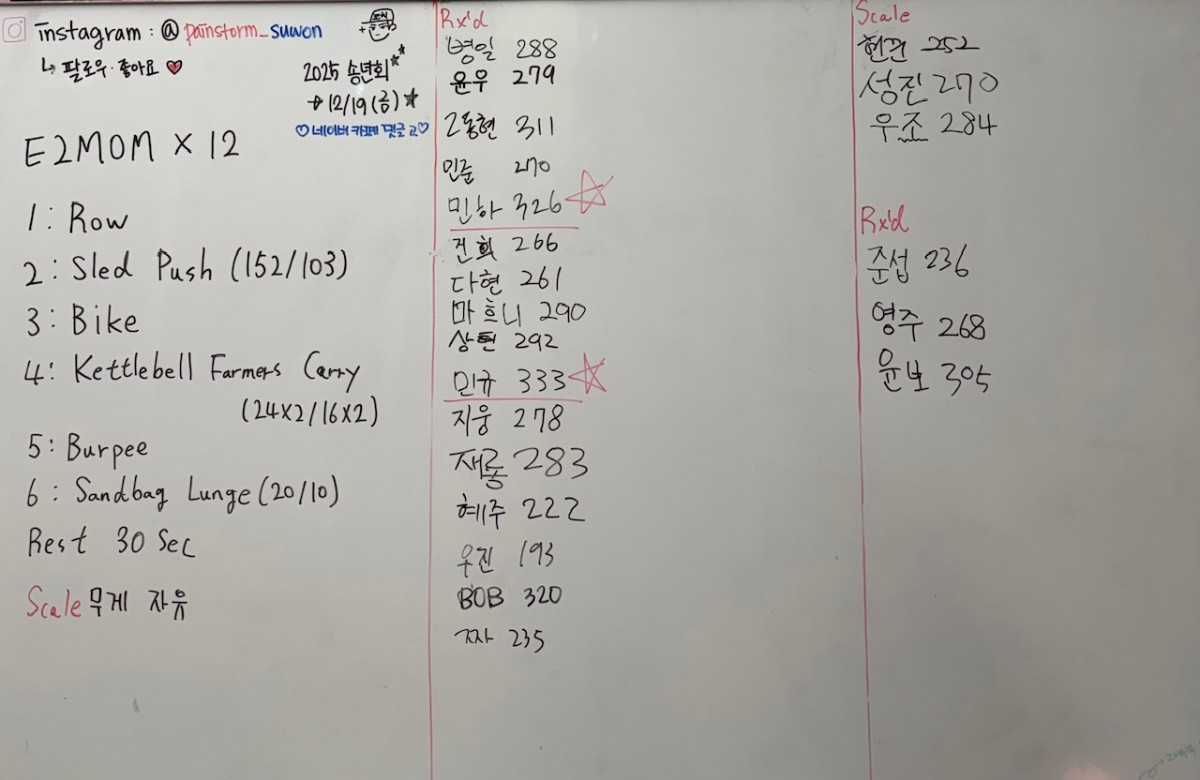 instagram : @painstorm_suwon
↳ 팔로우·좋아요 ♥
2025 송년회
→ 12/19(금)
♡네이버 카페 댓글 고♡
E2MOM X 12
1: Row
2: Sled Push (152/103)
3: Bike
4: Kettlebell Farmers Carry
(24X2/16X2)
5: Burpee
6: Sandbag Lunge (20/10)
Rest 30 Sec
Scale 무게 자유
Rx'd
병일 288
윤우 279
고동현 311
민준 270
민하 326
건희 266
다현 261
마흐니 290
상현 292
민규 333
지웅 278
재롱 283
혜주 222
우진 193
BOB 320
짜 235
Scale
현관 252
성진 270
우조 284
Rx'd
준섭 236
영주 268
윤보 305